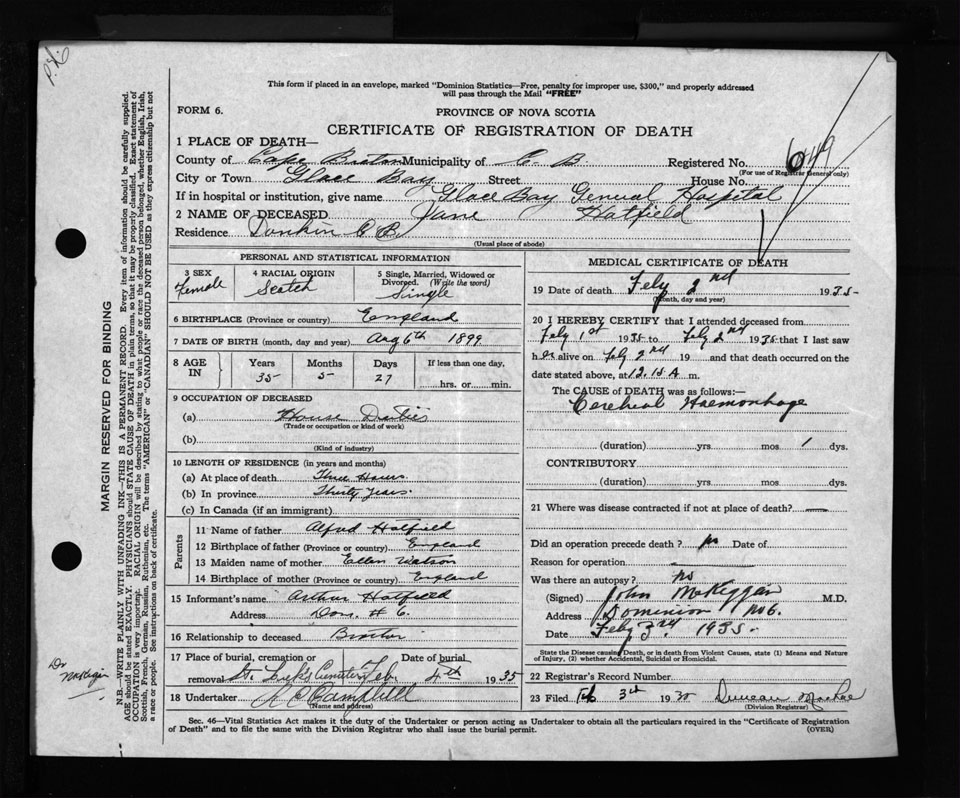 P.N.
This form if placed in an envelope, marked "Dominion Statistics—Free, penalty for improper use, $300," and properly addressed
will pass through the Mail "FREE"
FORM 6.
PROVINCE OF NOVA SCOTIA
CERTIFICATE OF REGISTRATION OF DEATH
1 PLACE OF DEATH—
County of Cape Breton Municipality of C. B. Registered No.
(For use of Registrar General only)
City or Town Glace Bay Street House No.
If in hospital or institution, give name Glace Bay General Hospital
2 NAME OF DECEASED Jane Hatfield
Residence Donkin C B.
(Usual place of abode)
PERSONAL AND STATISTICAL INFORMATION
3 SEX 4 RACIAL ORIGIN 5 Single, Married, Widowed or
Divorced. (Write the word)
Female Scotch Single
6 BIRTHPLACE (Province or country) England
7 DATE OF BIRTH (month, day and year) Aug 6th 1899
8 AGE IN Years Months Days If less than one day,
35 5 27 hrs. or min.
9 OCCUPATION OF DECEASED
(a) House Duties
(Trade or occupation or kind of work)
(b)
(Kind of industry)
10 LENGTH OF RESIDENCE (in years and months)
(a) At place of death Three Hours
(b) In province Thirty Years.
(c) In Canada (if an immigrant)
Parents
11 Name of father Alfred Hatfield
12 Birthplace of father (Province or country) England
13 Maiden name of mother Ellen Watson
14 Birthplace of mother (Province or country) England
15 Informant's name Arthur Hatfield
Address Dom. # 6.
16 Relationship to deceased Brother
17 Place of burial, cremation or Date of burial
removal St. Luke's Cemetery Feb. 4th 1935
18 Undertaker A C Campbell
(Name and address)
MEDICAL CERTIFICATE OF DEATH
19 Date of death Feby 2nd 1935-
(Month, day and year)
20 I HEREBY CERTIFY that I attended deceased from
Feby 1st 1935 to Feby 2nd 1935 that I last saw
her alive on Feby 2nd 19 and that death occurred on the
date stated above, at 12.15 A m.
The CAUSE OF DEATH was as follows:—
Cerebral Haemorrhage
(duration) yrs. mos 1 dys.
CONTRIBUTORY
(duration) yrs. mos. dys.
21 Where was disease contracted if not at place of death? —
Did an operation precede death? no Date of
Reason for operation
Was there an autopsy? no
(Signed) John McKeggan M.D.
Address Dominion No 6.
Date Feby 3rd 1935-
State the Disease causing Death, or in death from Violent Causes, state (1) Means and Nature
of Injury, (2) whether Accidental, Suicidal or Homicidal.
22 Registrar's Record Number
23 Filed Feb 3rd 1935 Duncan MacRae
(Division Registrar)
Sec. 46—Vital Statistics Act makes it the duty of the Undertaker or person acting as Undertaker to obtain all the particulars required in the "Certificate of Registration
of Death" and to file the same with the Division Registrar who shall issue the burial permit. (OVER)
MARGIN RESERVED FOR BINDING
N.B.—WRITE PLAINLY WITH UNFADING INK—THIS IS A PERMANENT RECORD. Every item of information should be carefully supplied.
AGE should be stated EXACTLY. PHYSICIANS should STATE CAUSE OF DEATH in plain terms, so that it may be properly classified. Exact statement of
OCCUPATION is very important. RACIAL ORIGIN will be described by stating to what people or race the deceased person belonged, whether English, Irish,
Scottish, French, German, Russian, Ruthenian, etc. The terms "AMERICAN" or "CANADIAN" SHOULD NOT BE USED as they express citizenship but not
a race or people. See instructions on back of certificate.
Dr